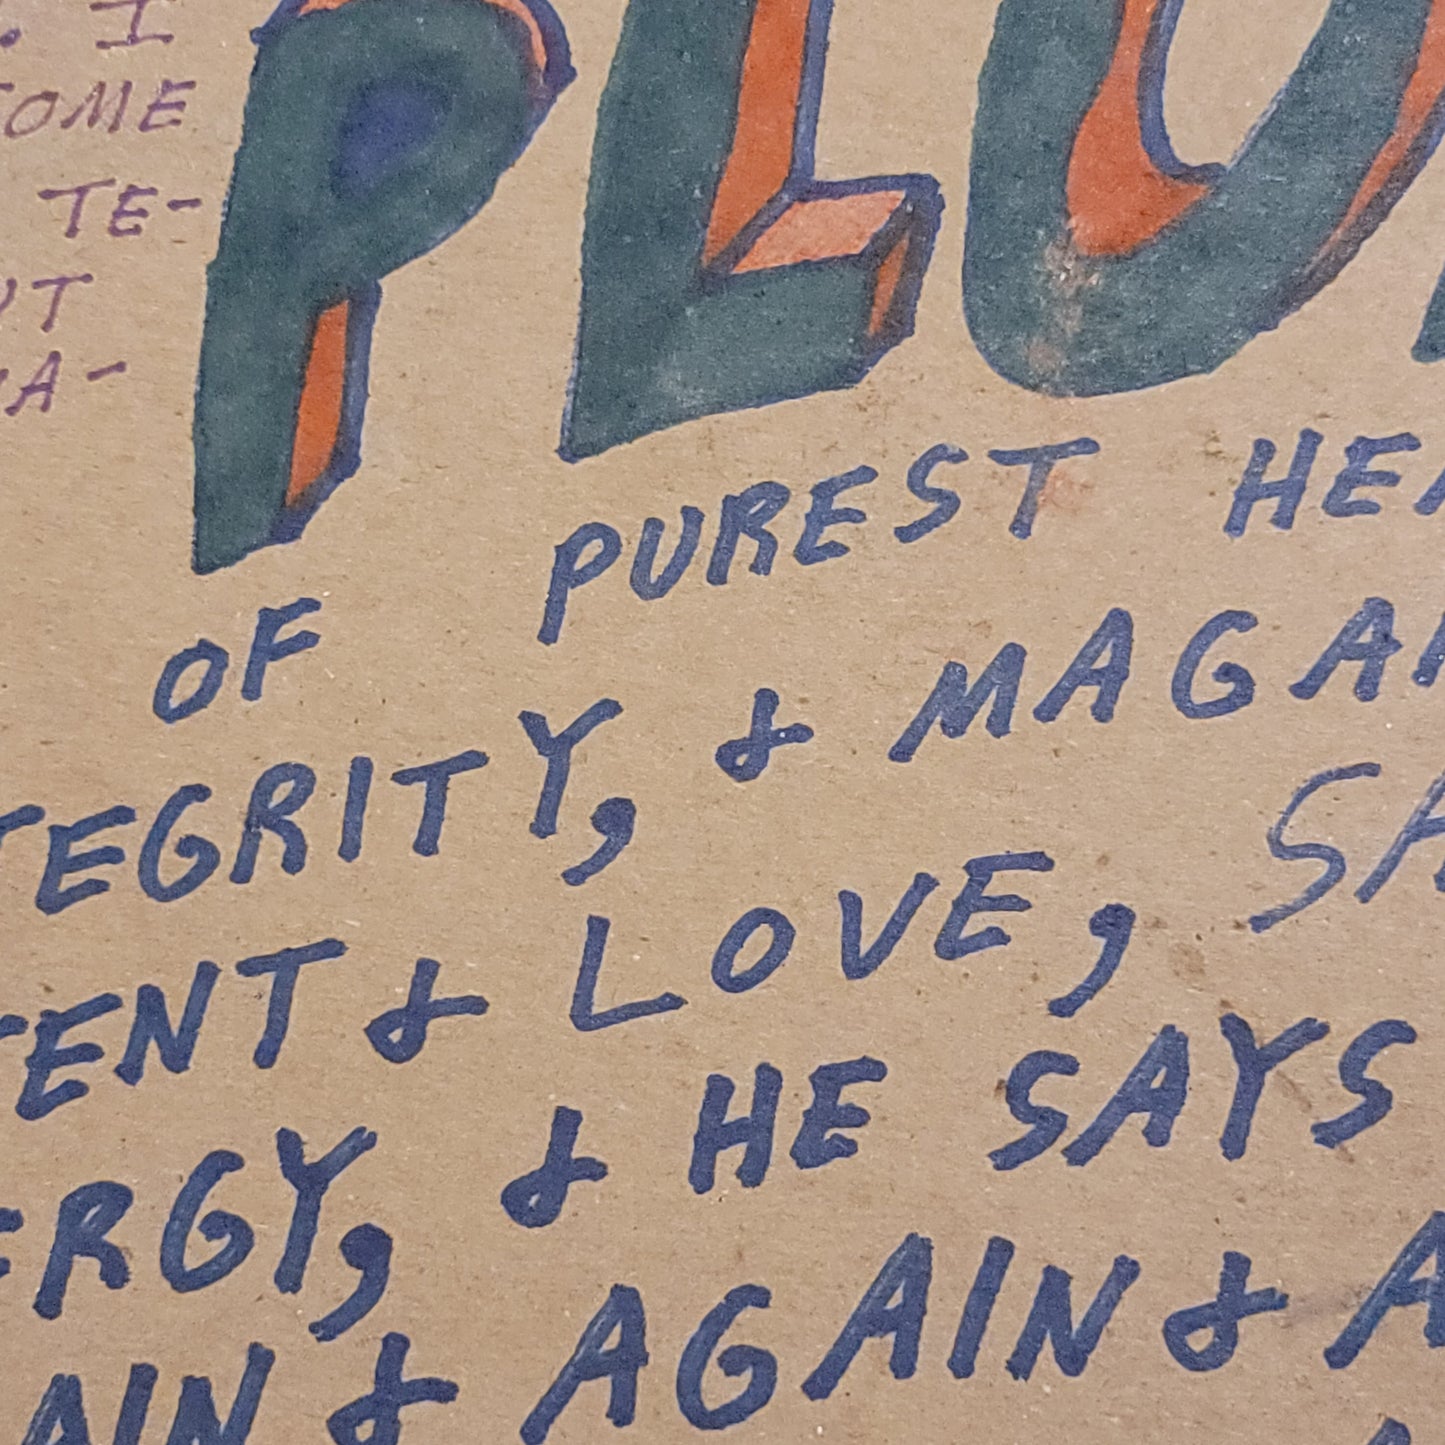 . I
SOME
TE-
UT
A-
PLU
OF PUREST HEA
TEGRITY, & MAGAN
TENT & LOVE, SA
ERGY, & HE SAYS
AIN & AGAIN & A